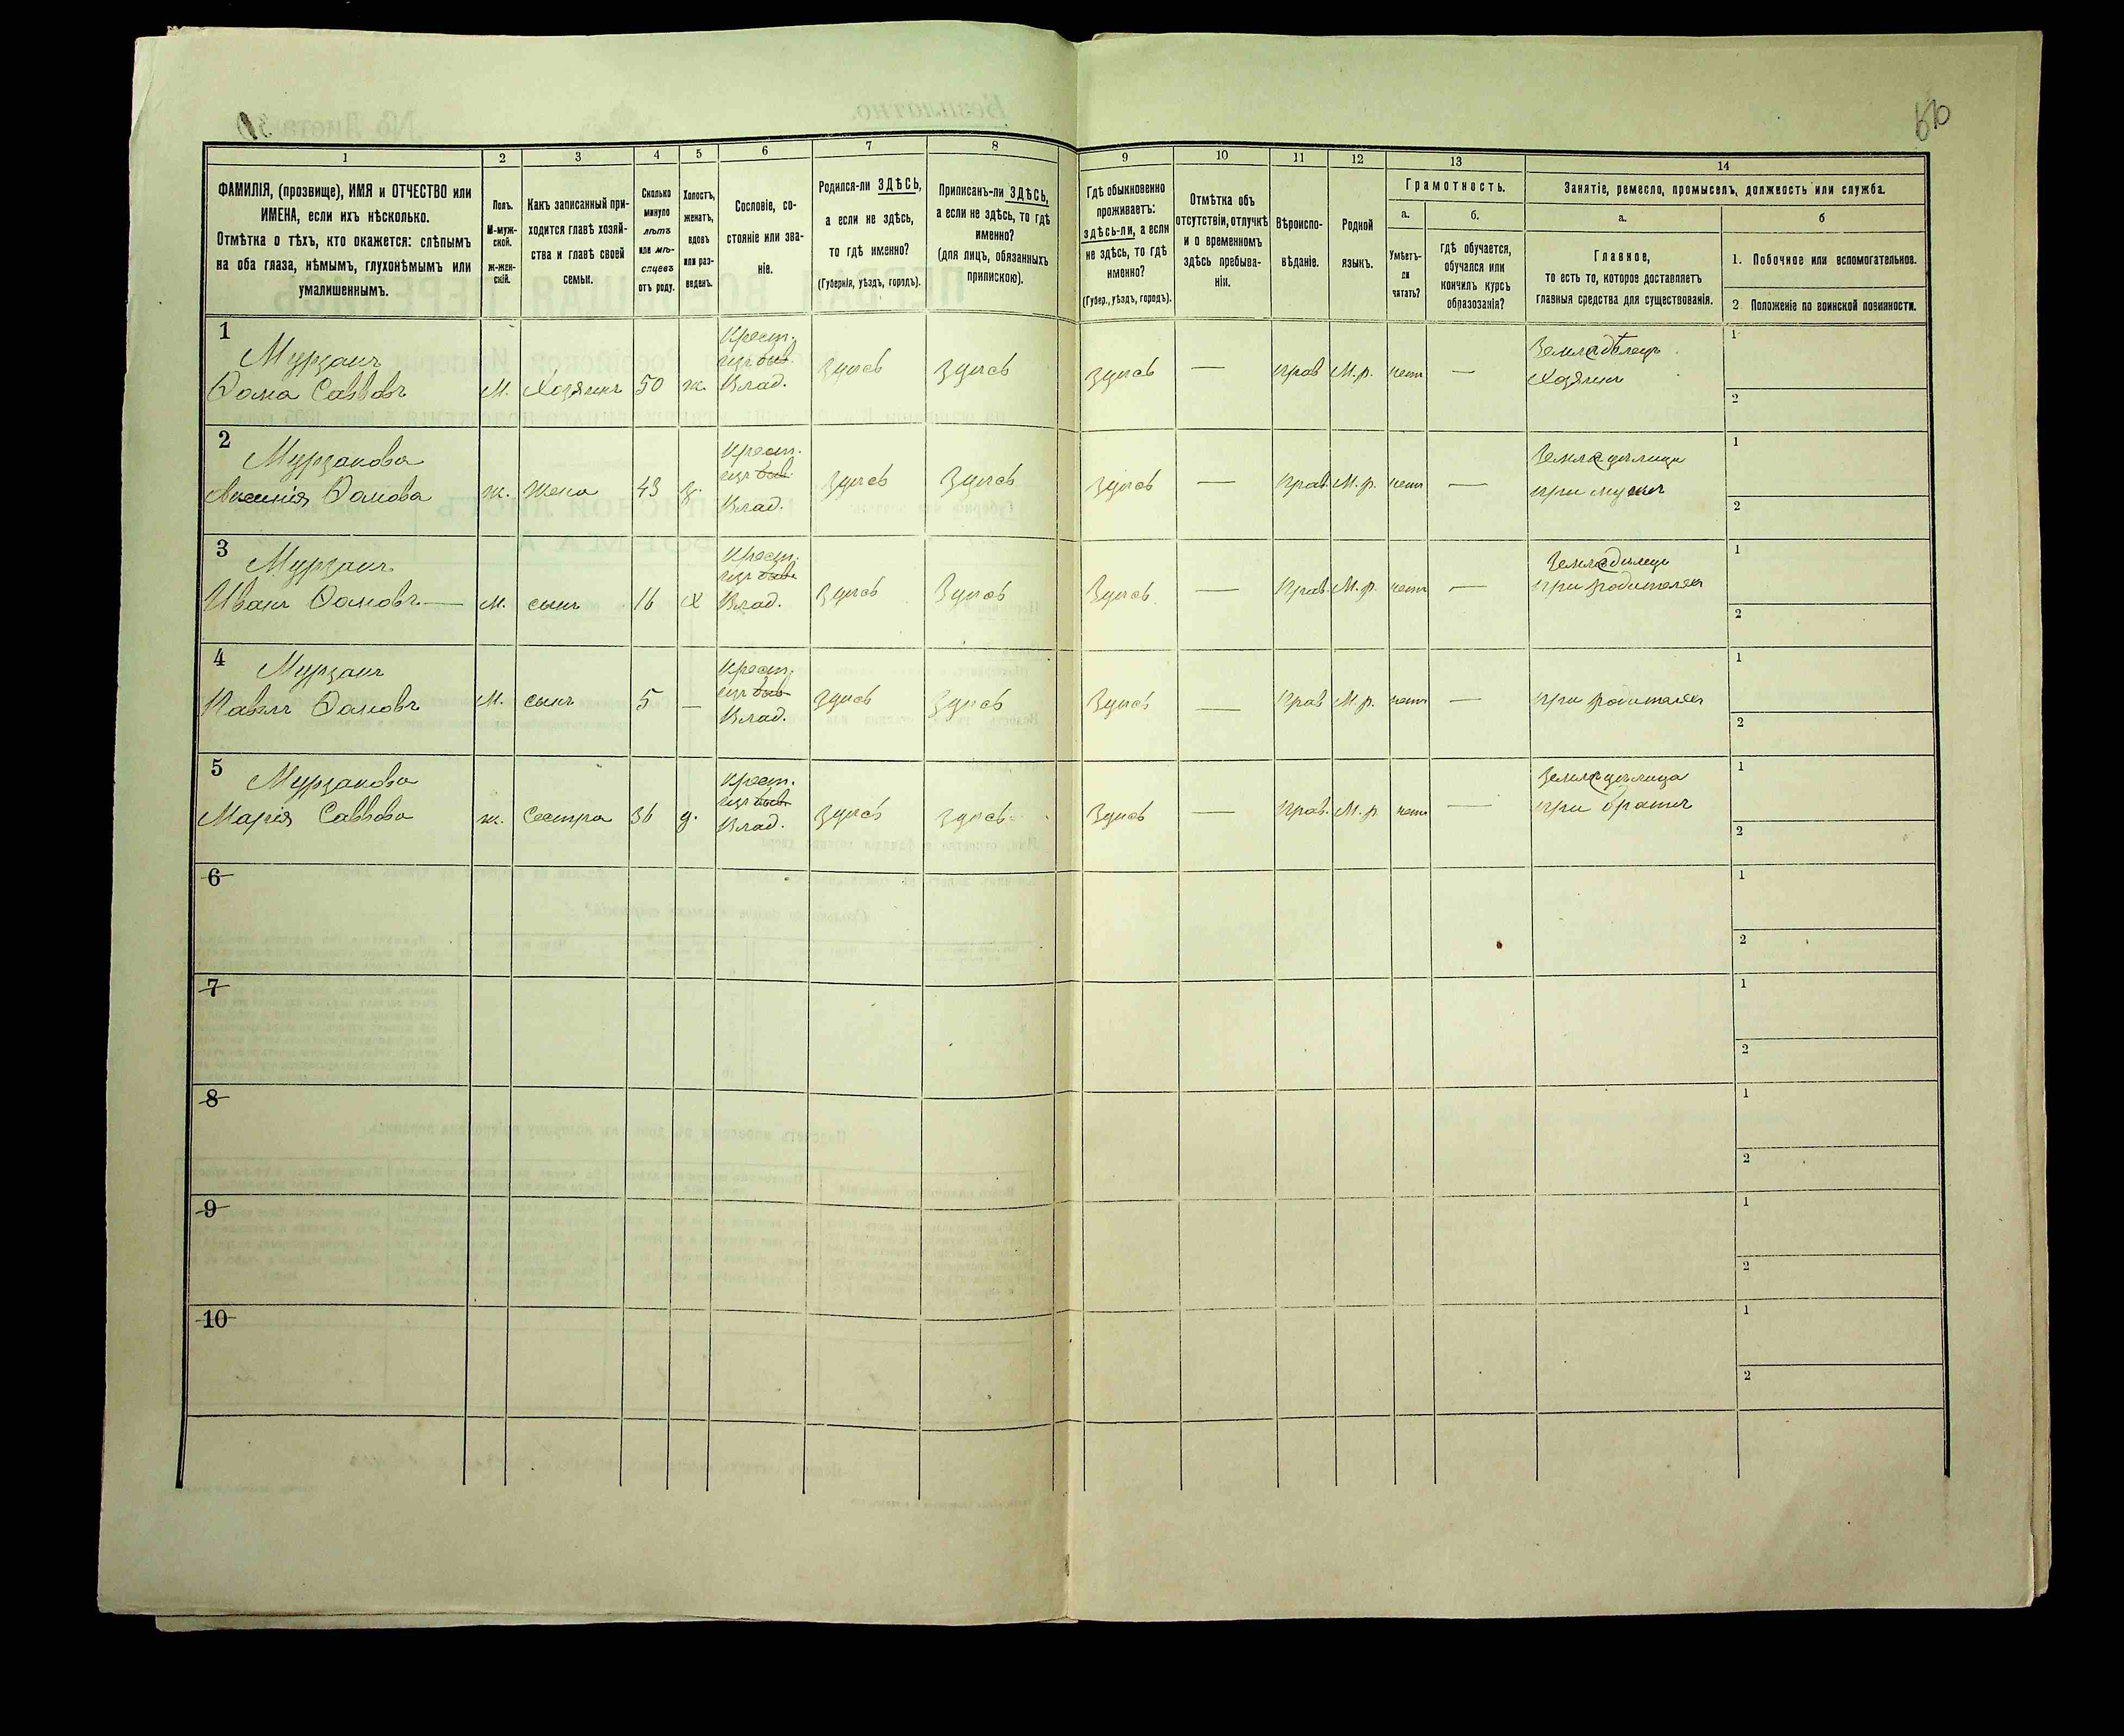 50
1 2 3 4 5 6 7 8 9 10 11 12 13 14
ФАМИЛІЯ, (прозвище), ИМЯ и ОТЧЕСТВО или
ИМЕНА, если ихъ нѣсколько.
Отмѣтка о тѣхъ, кто окажется: слѣпымъ
на оба глаза, нѣмымъ, глухонѣмымъ или
умалишеннымъ.
Полъ.
М-муж-
ской.
ж-жен-
скій.
Какъ записанный при-
ходится главѣ хозяй-
ства и главѣ своей
семьи.
Сколько
минуло
лѣтъ
или мѣ-
сяцевъ
отъ роду.
Холостъ,
женатъ,
вдовъ
или раз-
веденъ.
Сословіе, со-
стояніе или зва-
ніе.
Родился-ли ЗДѢСЬ,
а если не здѣсь,
то гдѣ именно?
(Губернія, уѣздъ, городъ).
Приписанъ-ли ЗДѢСЬ,
а если не здѣсь, то гдѣ
именно?
(для лицъ, обязанныхъ
припискою).
Гдѣ обыкновенно
проживаетъ:
здѣсь-ли, а если
не здѣсь, то гдѣ
именно?
(Губер., уѣздъ, городъ).
Отмѣтка объ
отсутствіи, отлучкѣ
и о временномъ
здѣсь пребыва-
ніи.
Вѣроиспо-
вѣданіе.
Родной
языкъ.
Грамотность.
а.
Умѣетъ-
ли
читать?
б.
гдѣ обучается,
обучался или
кончилъ курсъ
образозанія?
Занятіе, ремесло, промыселъ, должность или служба.
а.
Главное,
то есть то, которое доставляетъ
главныя средства для существованія.
б
1. Побочное или вспомогательное.
2 Положеніе по воинской повинности.
1
Мурзакъ
Ѳома Саввовъ
М.
Хозяинъ
50
ж.
Крест.
изъ быв.
Влад.
Здѣсь
Здѣсь
Здѣсь
—
Прав
М.р.
нетъ
—
Земледѣлецъ
Хозяинъ
1
2
2
Мурзакова
Аксинія Ѳомова
ж.
Жена
43
з.
Крест.
изъ быв.
Влад.
Здѣсь
Здѣсь
Здѣсь
—
Прав.
М.р.
нетъ
—
Земледѣлица
при мужѣ
1
2
3
Мурзакъ
Иванъ Ѳомовъ —
М.
сынъ
16
Х
Крест.
изъ быв.
Влад.
Здѣсь
Здѣсь
Здѣсь
—
Прав.
М.р.
нетъ
—
Земледѣлецъ
при родителяхъ
1
2
4
Мурзакъ
Павелъ Ѳомовъ
М.
сынъ
5
—
Крест.
изъ быв
Влад.
Здѣсь
Здѣсь
Здѣсь
—
Прав
М.р.
нетъ
—
при родителяхъ
1
2
5
Мурзакова
Марія Саввова
ж.
Сестра
36
д.
Крест.
изъ быв.
Влад.
Здѣсь
Здѣсь
Здѣсь
—
Прав.
М.р
нетъ
—
Земледѣлица
при братѣ
1
2
6
1
2
7
1
2
8
1
2
9
1
2
10
1
2